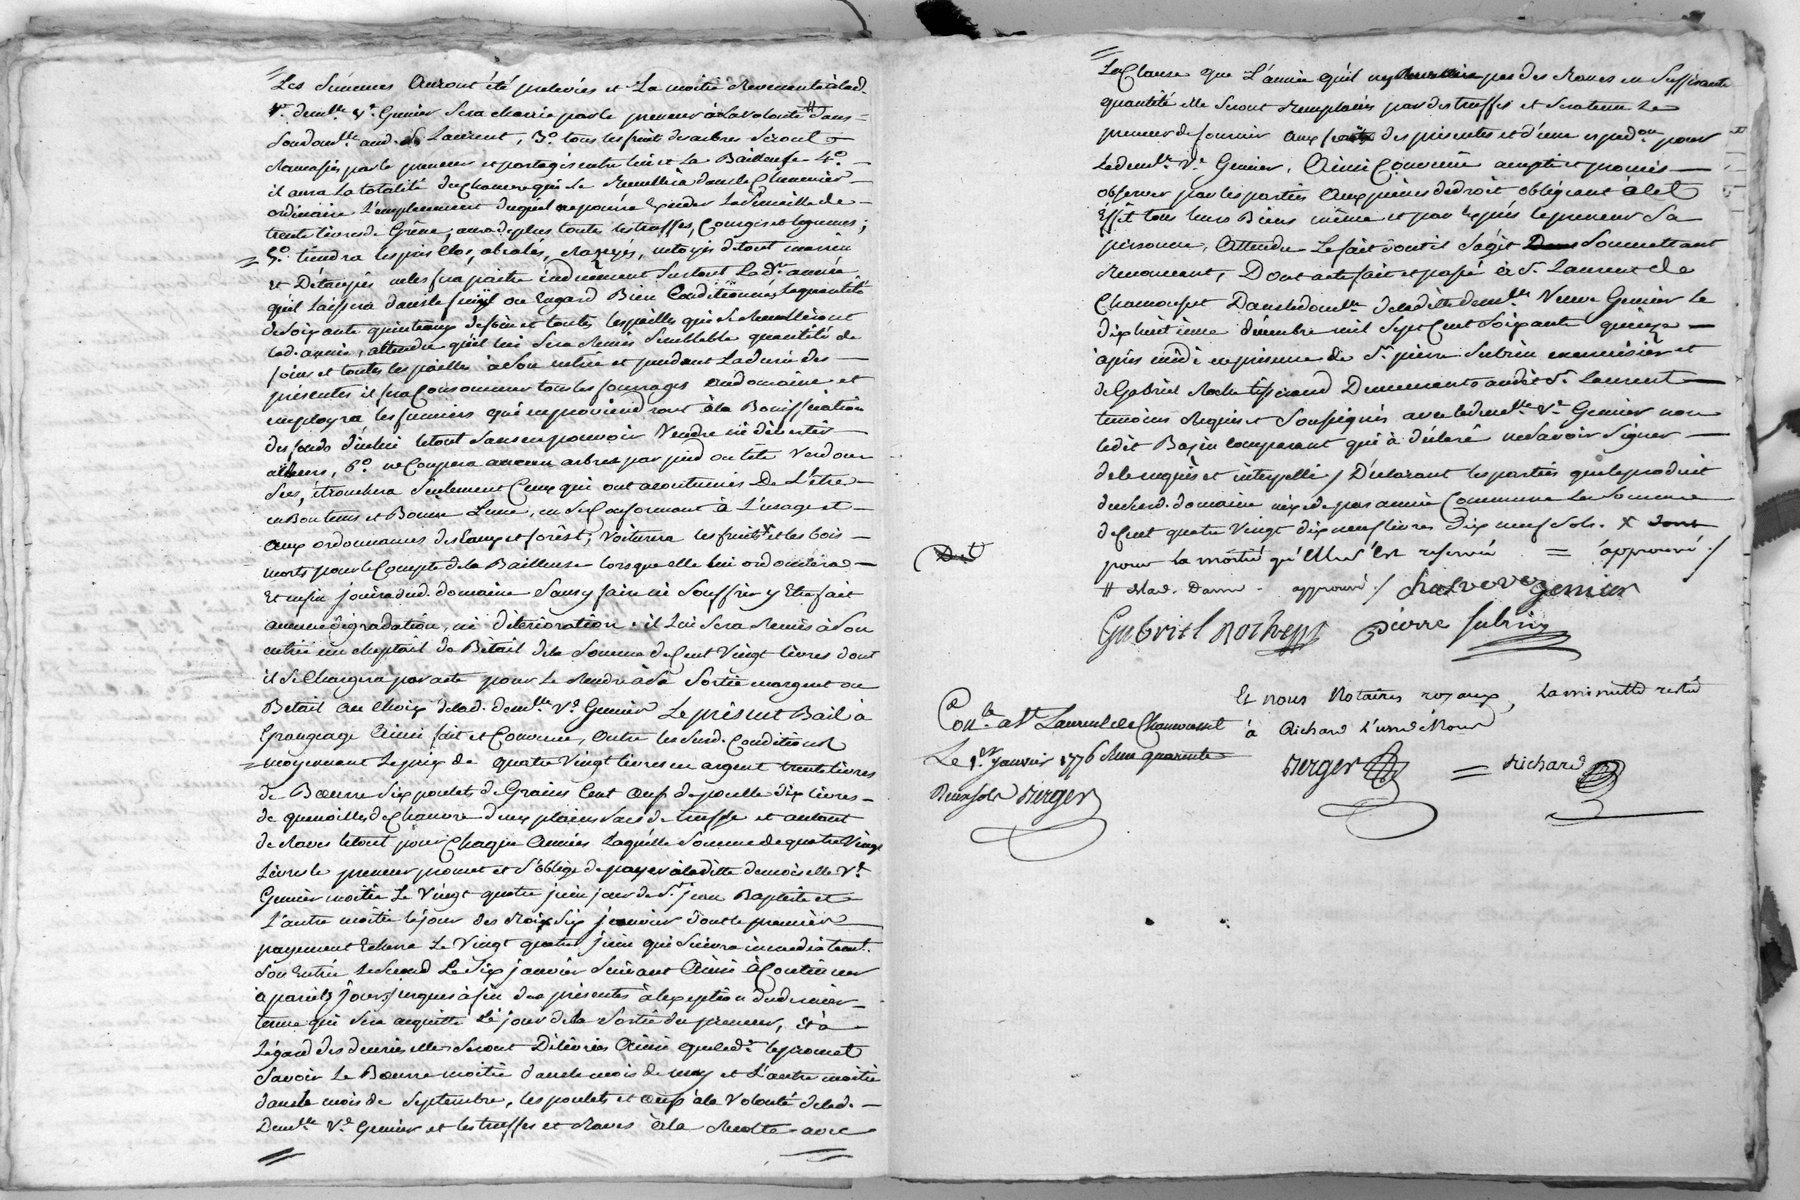 Les Semences auront été prelevées et la moitié Revenante à lad.
d. demlle Ve Genier Sera charié par le preneur à la volonté # dans
Son domlle aud. St Laurent, 3o tous les fruits des arbres Seront
Ramassés par le preneur et partagés entre lui et la Bailleuse 4o
il aura la totalité du Chanvre qui Se Recueillira dans le Chenevier
ordinaire l'emplacement duquel ne pourra Exceder la Semaille de
trente livres de Graine, aura de plus toutes les truffes, Courges et legumes;
5o tiendra les prés clos, abialés, Rasgés, netoyés de tout
et d'étaupés
qu'il laissera dans le fenil ou hangard Bien Conditionnés la quantité
de Soixante quinteaux de foin et toutes les pailles qui Se Recueilleront
lad. année, attendu qu'il lui Sera Remis Semblable quantité de
foin et toutes les pailles à Son entrée et pendant la durée des
présentes il fera Consommer tous les fourrages dud domaine et
employra les fumiers qui en proviendront à la Bonification
des fonds d'icelui le tout Sans en pouvoir Vendre ni divertir
ailleurs, 6o ne Coupera aucun arbres par pied ou tête Verds ou
Secs, étronchera Seulement Ceux qui ont acoutumés De L'être
en Bon tems et Bonne Lune, en Se Conformant à L'usage et
aux ordonnances des Eaux et forêst, Voiturera les fruits x et les bois
morts pour le Compte de la Bailleuse lorsque elle lui ordonnera
Et enfin jouira dud. domaine Sans y faire ni Souffrir y Etre fait
aucune dégradation, ni déterioration. il Lui Sera Remis à Son
entrée un cheptail de Bétail de la Somme de Cent Vingt livres dont
il Se Chargera par acte pour Le Rendre à Sa Sortie en argent ou
Bétail au choix de lad. demlle Ve Genier Le présent Bail à
Grangeage Ainsi fait et Convenu, Outre les Susd. Conditions
moyennant Le prix de quatre Vingt livres en argent trente livres
de Beurre Six poulets de Grains Cent œufs de poulle dix livres
de quenoilles de Chanvre deux pleins Sacs de truffe et autant
de Raves le tout pour Chaque Années Laquelle Somme de quatre Vingt
Livres le preneur promet et S'oblige de payer à laditte demoiselle Ve
Genier moitié Le Vingt quatre juin jour de St jean Baptiste et
L'autre moitié le jour des Rois Six janvier dont le premier
payement Echera Le Vingt quatre juin qui Suivra immediatemt
Son Entrée le Second Le Six janvier Suivant Ainsi à Continuer
à pareils jours jusques à fin des présentes à l'exception du dernier
terme qui Sera acquitté Le jour de la Sortie du preneur, et à
Légard des denrées elles Seront Délivrées Ainsi que led. le promet
Savoir Le Beurre moitié dans le mois de may et L'autre moitié
dans le mois de Septembre, les poulets et œufs à la Volonté de lad.
Demlle Ve Genier et les truffes et Raves à la Recolte avec
La Clause que L'année qu'il ny Recueillira pas des Raves en Suffisante
quantité elle Seront Remplacées par des truffes et Sera tenu Le
preneur de fournir aux des présentes et d'une expedon pour
lad demlle Ve Genier, Ainsi Convenu accepté et promis
observer par les parties Aux peines de droit obligeant à Cet
Effet tous leurs Biens même et par Exprés le preneur Sa
personne, Attendu Le fait dont il Sagit Soumettant
Renonceant, Dont acte fait et passé à St. Laurent de
Chamousset Dans le domlle de laditte demlle Veuve Genier le
dix huitieme décembre mil Sept Cent Soixante quinze
après midi en présence de Sr. pierre Subrin menuisier et
de Gabriel Roche tisserand Demeurants audit St Laurent
temoins Requis et Soussignés avec lad demlle Ve Genier non
ledit Bazin comparant qui à déclaré ne Savoir Signer
de ce enquis et interpellé / Déclarant les parties que le produit
du Susd. domaine nexcede pas année Commune La Somme
de Cent quatre Vingt dix neuf livres dix neuf Sols. x dont
pour la moitié qu'Elle S'Est reservée = approuvé /
# de lad. Dame. approuvé / Veve genier
Gabriel Roche pierre Subrin
Et nous Notaires royaux, La minutte restée
à Richard L'un de Nous
Berger = Richard
Conlé a St Laurent de Chamousset
Le 1er. janvier 1776 Reçu quarante
Neuf sols Berger